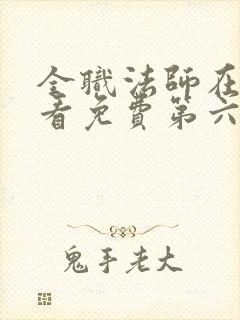 全職法師在
看免費第六
鬼手老大